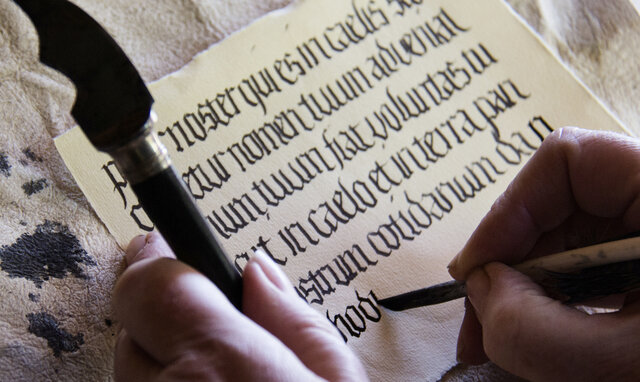 noster qui es in caelis
cetur nomen tuum adveniat
num tuum fiat voluntas tu
in caelo et in terra pan
strum cotidianum da n
hodi